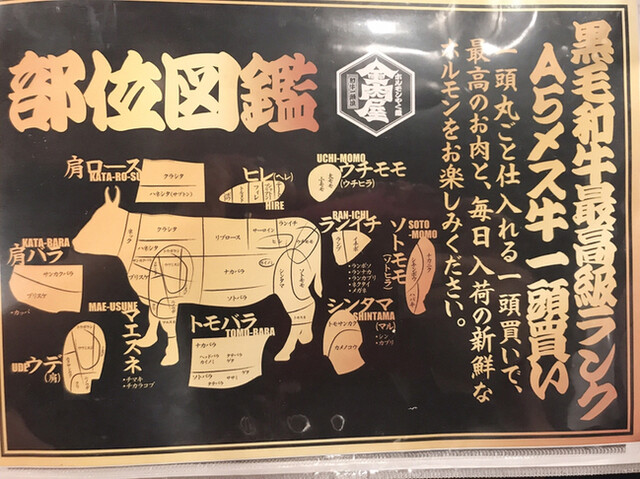 黒毛和牛最高級ランク
A5メス牛一頭買い
一頭丸ごと仕入れる一頭買いで、
最高のお肉と、毎日入荷の新鮮な
ホルモンをお楽しみください。
部位図鑑
肩ロース
KATA-RO-SU
クラシタ
ハネシタ(ザブトン)
ヒレ(ヘレ)
HIRE
UCHI-MOMO
ウチモモ
(ウチヒラ)
KATA-BARA
肩バラ
サンカクバラ
ブリスケ
・カッパ
ネック
クラシタ
ハネシタ
リブロース
サーロイン
ランイチ
ブリスケ
ナカバラ
ソトバラ
シンタマ
ソトモモ
RAN-ICHI
ランイチ
ランプ
イチボ
・ランボソ
・ランナカ
・ランカブリ
・ネクタイ
・メガネ
SOTO-MOMO
ソトモモ
(ソトヒラ)
ナカニク
ハバキ
MAE-SUNE
マエスネ
・チマキ
・チカラコブ
UDE
ウデ
(肩)
トモバラ
TOMO-BARA
ナカバラ
ソトバラ
シンタマ
SHINTAMA
(マル)
トモサンカク
カメノコウ
・シン
・カブリ
ホルモンやき
金肉屋